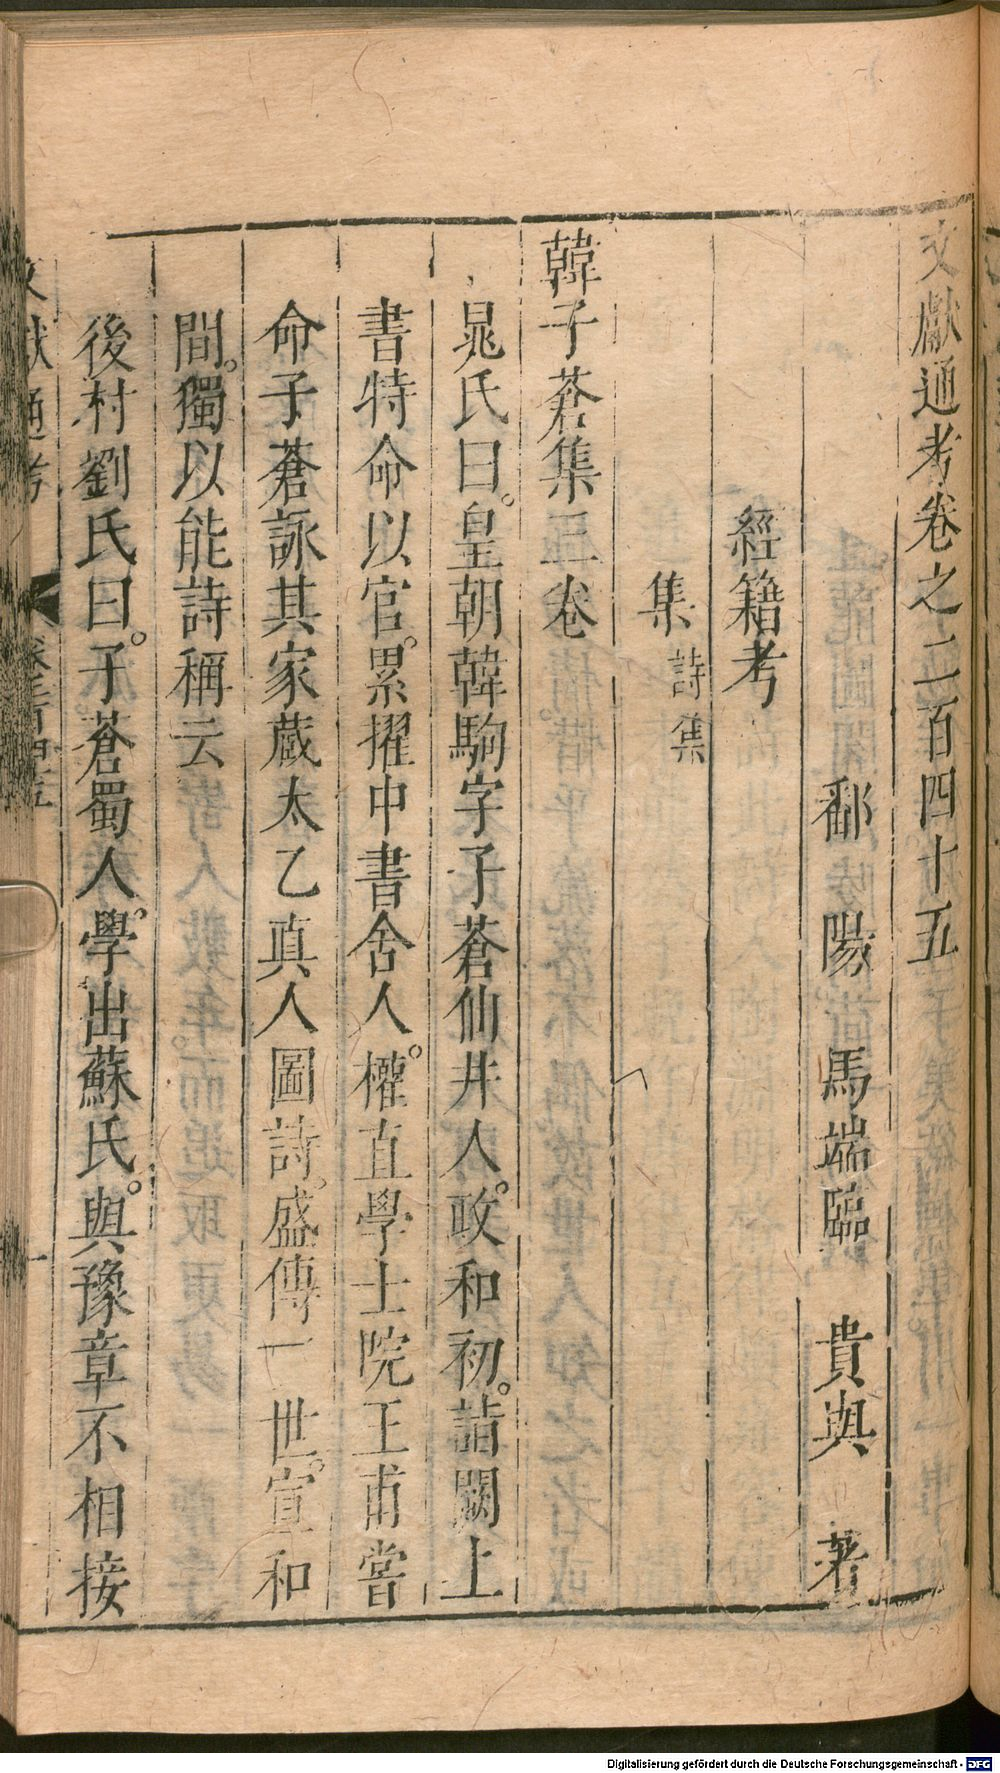 文獻通考卷之二百四十五
鄱陽馬端臨貴與著
經籍考
集詩集
韓子蒼集三卷
晁氏曰。皇朝韓駒字子蒼仙井人。政和初。詣闕上
書特命以官。累擢中書舍人。權直學士院王甫嘗
命子蒼詠其家蔵太乙真人圖詩。盛傳一世。宣和
間。獨以能詩稱云
後村劉氏曰。子蒼蜀人。學出蘇氏。與豫章不相接
Digitalisierung gefördert durch die Deutsche Forschungsgemeinschaft - DFG